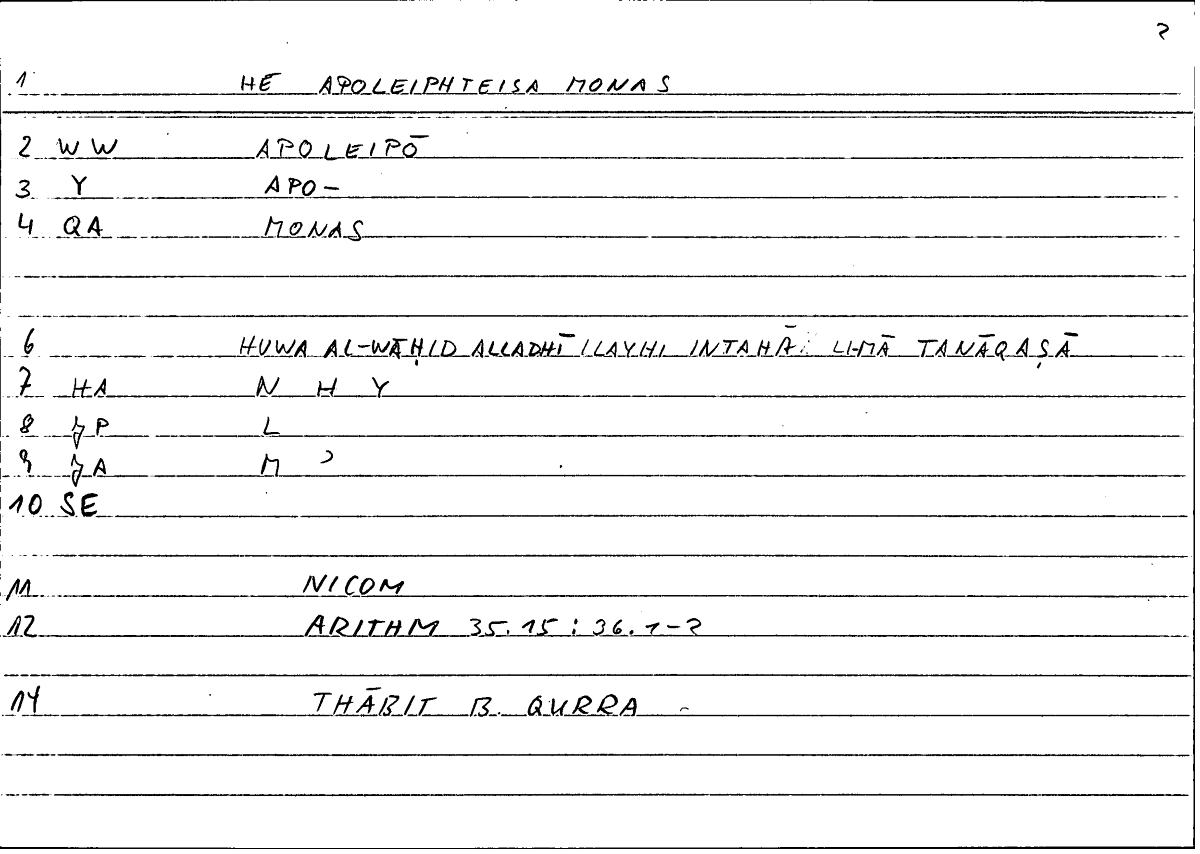 2
1 HĒ APOLEIPHTEISA MONAS
2 WW APOLEIPŌ
3 Y APO-
4 QA MONAS
6 HUWA AL-WĀḤID ALLADHĪ ILAYHI INTAHĀ LI-MĀ TANĀQAṢĀ
7 HA N H Y
8 ʒP L
9 ʒA M ʾ
10 SE
11 NICOM
12 ARITHM 35.15 : 36.1-2
14 THĀBIT B. QURRA